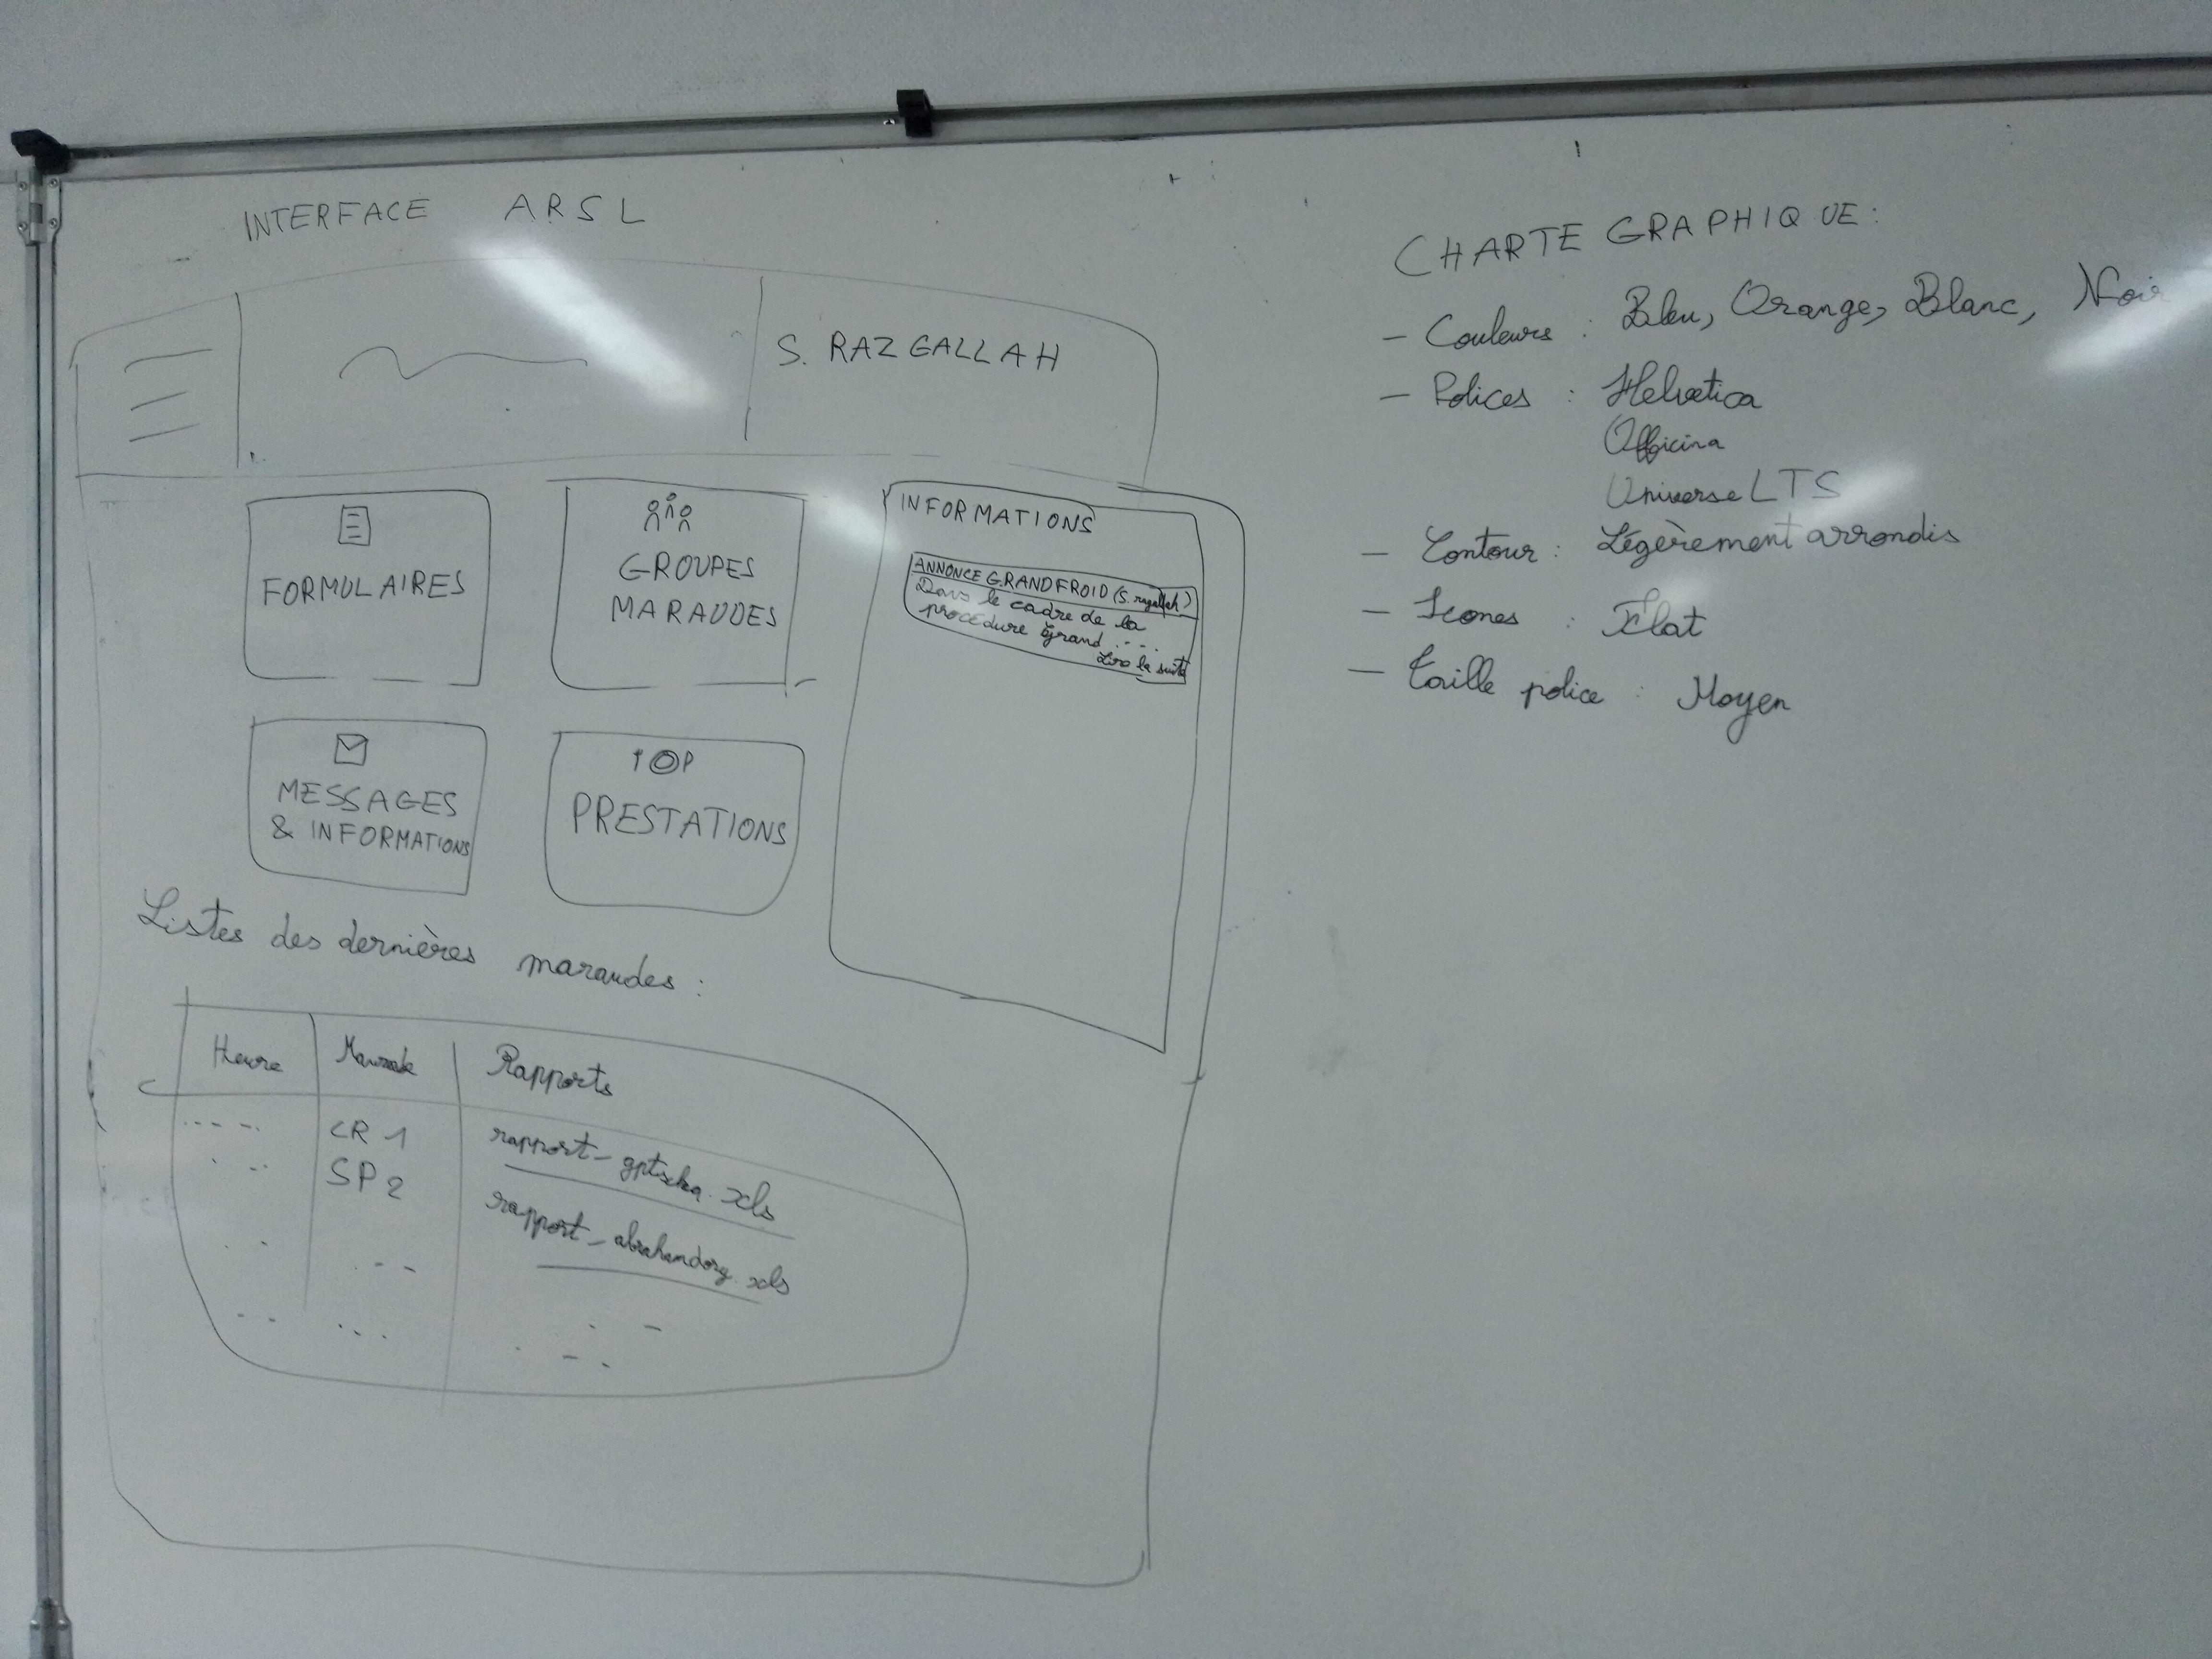 INTERFACE ARSL
S. RAZGALLAH
FORMULAIRES
GROUPES
MARAUDES
MESSAGES
& INFORMATIONS
PRESTATIONS
INFORMATIONS
ANNONCE GRAND FROID (S. razgallah)
Dans le cadre de la
procédure Grand ....
Lire la suite
Listes des dernières maraudes :
Heure Maraude Rapports
CR 1 rapport_ .xls
SP 2 rapport_ .xls
CHARTE GRAPHIQUE :
- Couleurs : Bleu, Orange, Blanc, Noir
- Polices : Helvetica
Officina
Universe LTS
- Contour : Légèrement arrondis
- Icones : Flat
- Taille police : Moyen